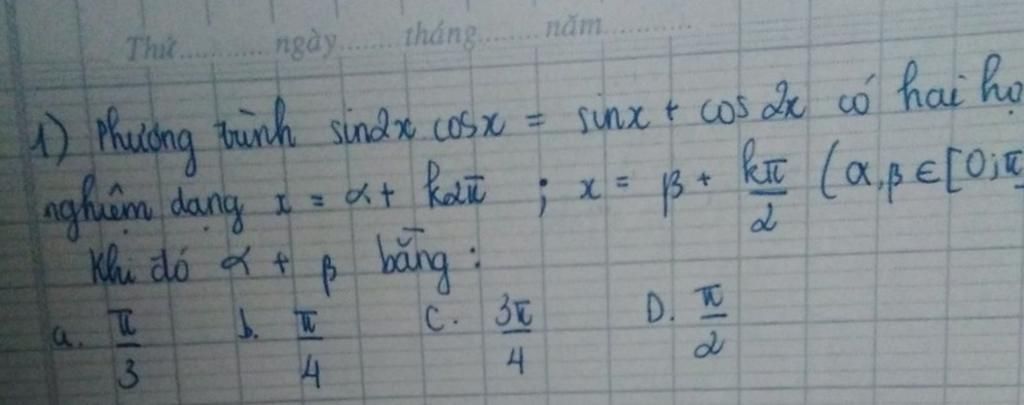 Thứ......... ngày...... tháng...... năm.........
1) Phương trình sin2x cosx = sinx + cos 2x có hai họ
nghiệm dạng x = α + k2π ; x = β + kπ/2 (α, β ∈ [0; π
Khi đó α + β bằng :
a. π/3 b. π/4 C. 3π/4 D. π/2